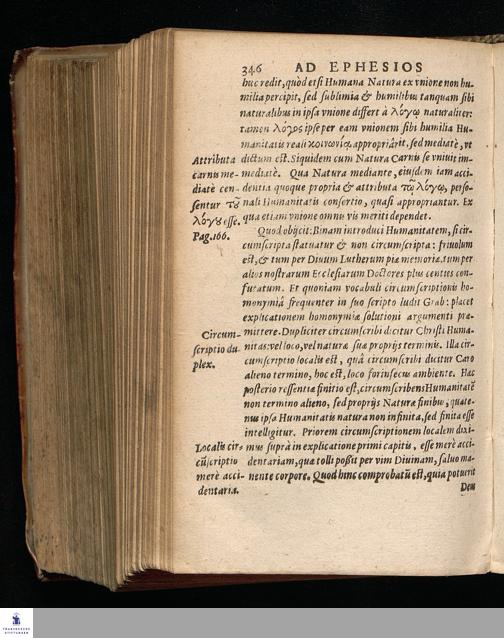 346 AD EPHESIOS
huc redit, quòd etsi Humana Natura ex vnione non hu-
milia percipit, sed sublimia & humilibus tanquam sibi
naturalibus in ipsa vnione differt à λόγῳ naturaliter:
tamen λόγος ipse per eam vnionem sibi humilia Hu-
manitatis reali κοινωνίᾳ appropriârit, sed mediatè, vt
dictum est. Siquidem cum Natura Carnis se vniuit im-
mediatè. Qua Natura mediante, eiusdem iam acci-
dentia quoque propria & attributa τῷ λόγῳ, perso-
nali Humanitatis consortio, quasi appropriantur. Ex
qua etiam vnione omnis vis meriti dependet.
Attributa
carnis me-
diatè cen-
sentur τοῦ
λόγου esse.
Pag. 166.
Quod obijcit: Binam introduci Humanitatem, si cir-
cumscripta statuatur & non circumscripta: friuolum
est, & tum per Diuum Lutherum piæ memoriæ, tum per
alios nostrarum Ecclesiarum Doctores plus centies con-
futatum. Et quoniam vocabuli circumscriptionis ho-
monymiâ frequenter in suo scripto ludit Grab: placet
explicationem homonymiæ solutioni argumenti præ-
mittere. Dupliciter circumscribi dicitur Christi Huma-
nitas: vel loco, vel naturæ suæ proprijs terminis. Illa cir-
cumscriptio localis est, quâ circumscribi dicitur Caro
alieno termino, hoc est, loco forinsecus ambiente. Hæc
posterio ressentiæ finitio est, circumscribens Humanitatē
non termino alieno, sed proprijs Naturæ finibus, quate-
nus ipsa Humanitatis natura non infinita, sed finita esse
intelligitur. Priorem circumscriptionem localem dixi-
mus suprà in explicatione primi capitis, esse merè acci-
dentariam, quæ tolli possit per vim Diuinam, saluo ma-
nente corpore. Quod hinc comprobatū est, quia potuerit
Circum-
scriptio du
plex.
Localis cir-
cūscriptio
merè acci-
dentaria.
Deus
FRANCKESCHE
STIFTUNGEN